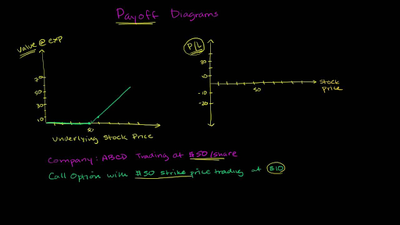 Payoff Diagrams
Value @ exp
P/L
50
30
10
50
-10
-20
Stock
Price
50
Underlying Stock Price
Company: ABCD Trading at $50/share
Call Option with $50 strike price trading at $10